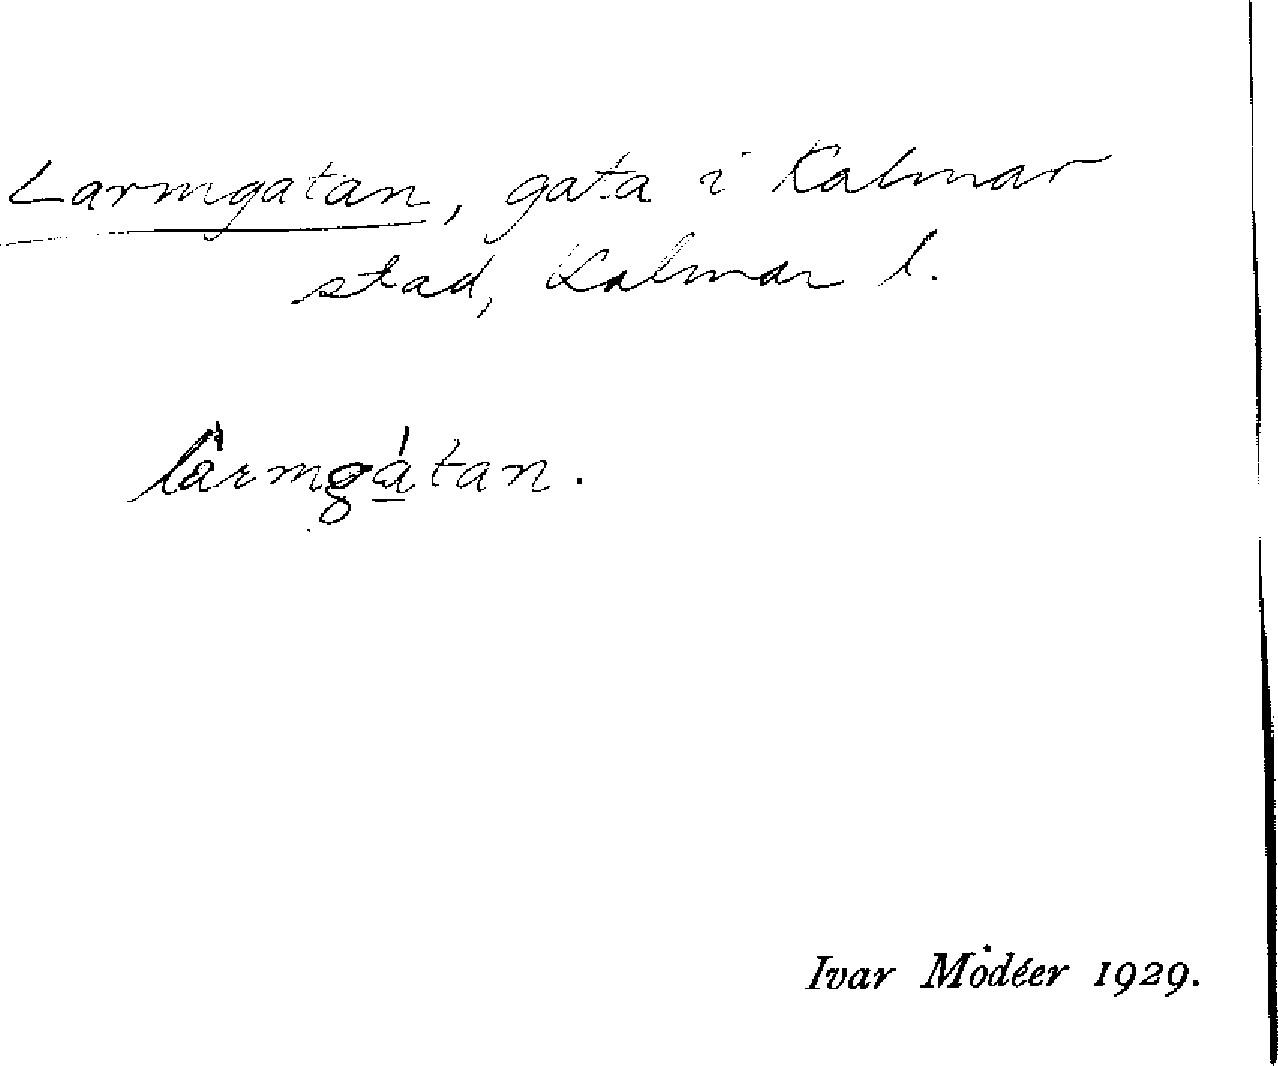 Larmgatan, gata i Kalmar
stad, Kalmar l.
lärmgátan.
Ivar Modéer 1929.